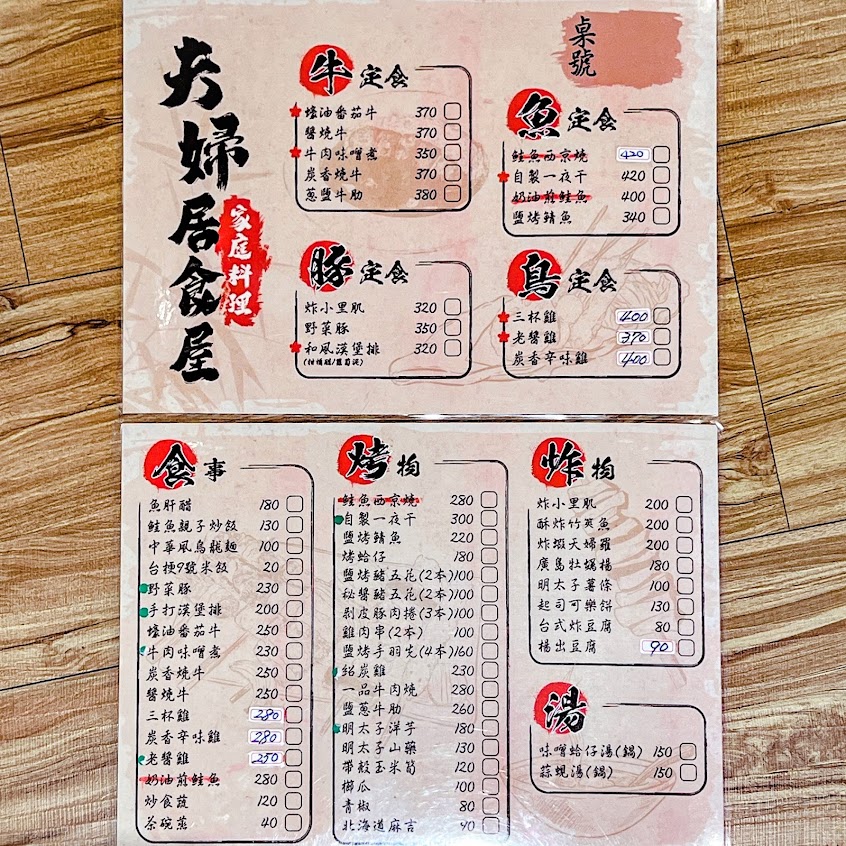 夫婦居食屋
家庭料理
桌號
牛定食
蠔油番茄牛 370
醬燒牛 370
牛肉味噌煮 350
炭香燒牛 370
蔥鹽牛肋 380
魚定食
鮭魚西京燒 420
自製一夜干 420
奶油煎鮭魚 400
鹽烤鯖魚 340
豚定食
炸小里肌 320
野菜豚 350
和風漢堡排 320
(柑橘醋/蘿蔔泥)
鳥定食
三杯雞 400
老醬雞 370
炭香辛味雞 400
食事
魚肝醋 180
鮭魚親子炒飯 130
中華風烏龍麵 100
台梗9號米飯 20
野菜豚 230
手打漢堡排 200
蠔油番茄牛 250
牛肉味噌煮 230
炭香燒牛 250
醬燒牛 250
三杯雞 280
炭香辛味雞 280
老醬雞 250
奶油煎鮭魚 280
炒食蔬 120
茶碗蒸 40
烤物
鮭魚西京燒 280
自製一夜干 300
鹽烤鯖魚 220
烤蛤仔 180
鹽烤豬五花(2本) 100
秘醬豬五花(2本) 100
剝皮豚肉捲(3本) 100
雞肉串(2本) 100
鹽烤手羽先(4本) 160
紹炭雞 230
一品牛肉燒 280
鹽蔥牛肋 260
明太子洋芋 180
明太子山藥 130
帶殼玉米筍 120
櫛瓜 100
青椒 80
北海道麻吉 90
炸物
炸小里肌 200
酥炸竹筴魚 200
炸蝦天婦羅 200
廣島牡蠣楊 180
明太子薯條 100
起司可樂餅 130
台式炸豆腐 80
楊出豆腐 90
湯
味噌蛤仔湯(鍋) 150
蒜蜆湯(鍋) 150